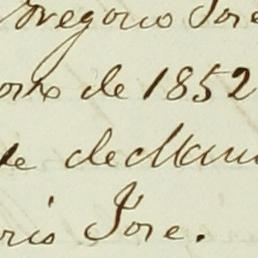 Gregorio Jose
de 1852
de Man
rio Jose.